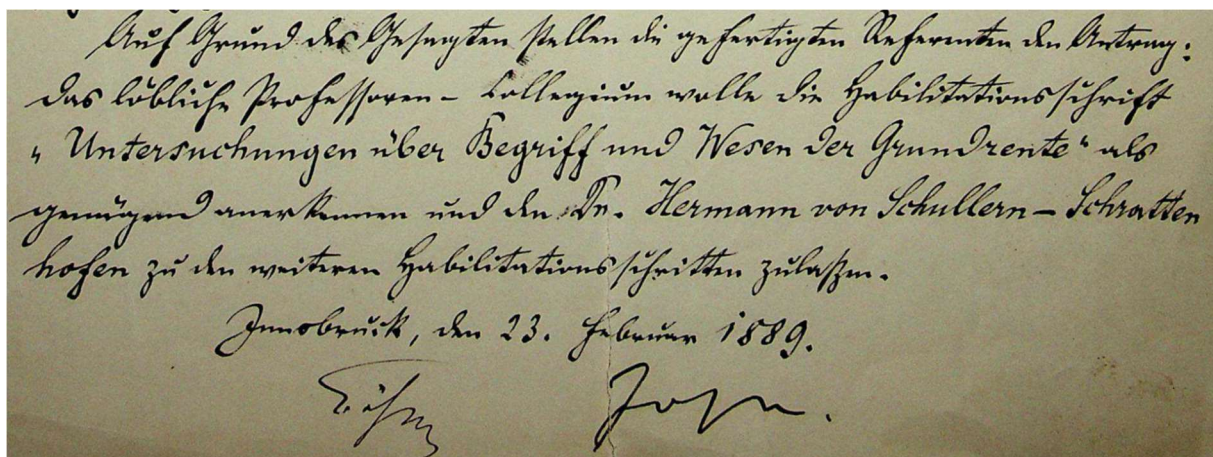 Auf Grund des Gesagten stellen die gefertigten Referenten den Antrag:
das löbliche Professoren-Collegium wolle die Habilitationsschrift
„Untersuchungen über Begriff und Wesen der Grundrente“ als
genügend anerkennen und den Dr. Hermann von Schullern-Schratten
hofen zu den weiteren Habilitationsschritten zulaßen.
Innsbruck, den 23. Februar 1889.
Böhm John.